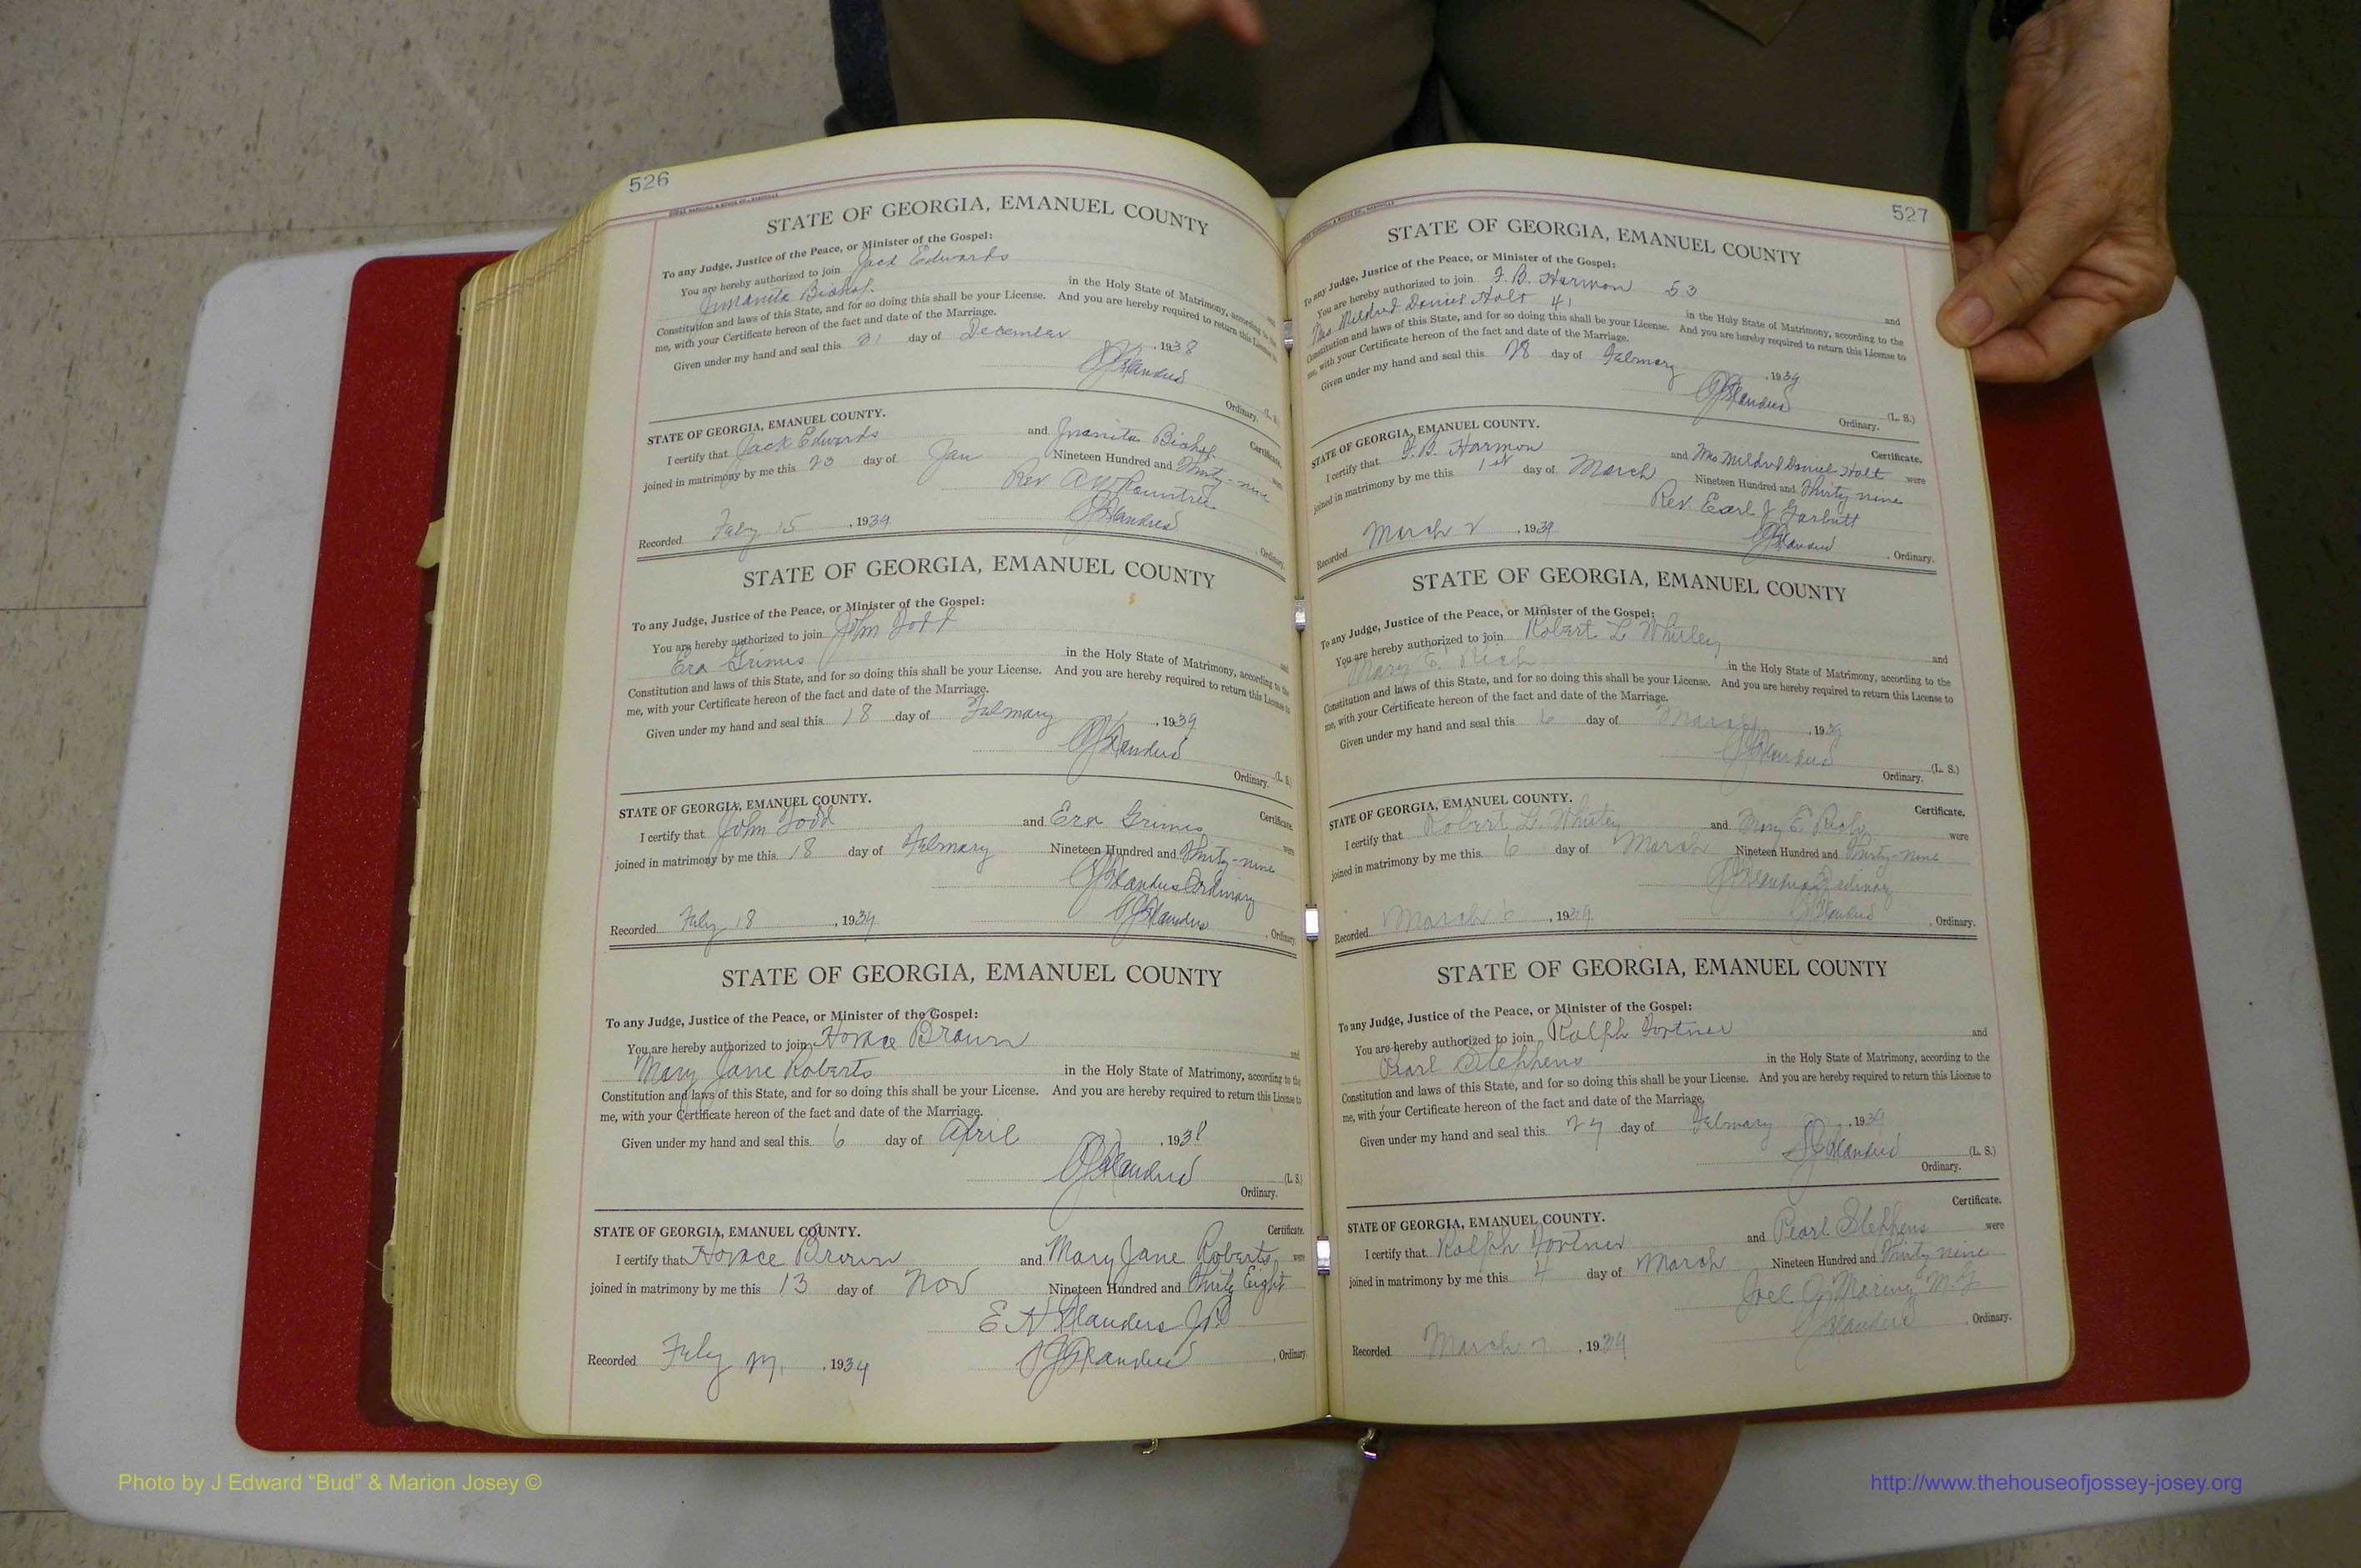 526
STATE OF GEORGIA, EMANUEL COUNTY
To any Judge, Justice of the Peace, or Minister of the Gospel:
You are hereby authorized to join Jack Edwards and
Juanita Bishop in the Holy State of Matrimony, according to the
Constitution and laws of this State, and for so doing this shall be your License. And you are hereby required to return this License to
me, with your Certificate hereon of the fact and date of the Marriage.
Given under my hand and seal this 21 day of December, 1938
(L. S.)
Ordinary.
STATE OF GEORGIA, EMANUEL COUNTY. Certificate.
I certify that Jack Edwards and Juanita Bishop were
joined in matrimony by me this 23 day of Jan Nineteen Hundred and Thirty-nine
Rev. A W Rountree
Recorded Feby 15, 1939 Ordinary.
STATE OF GEORGIA, EMANUEL COUNTY
To any Judge, Justice of the Peace, or Minister of the Gospel:
You are hereby authorized to join John Todd and
Era Grimes in the Holy State of Matrimony, according to the
Constitution and laws of this State, and for so doing this shall be your License. And you are hereby required to return this License to
me, with your Certificate hereon of the fact and date of the Marriage.
Given under my hand and seal this 18 day of February, 1939
(L. S.)
Ordinary.
STATE OF GEORGIA, EMANUEL COUNTY. Certificate.
I certify that John Todd and Era Grimes were
joined in matrimony by me this 18 day of February Nineteen Hundred and Thirty-nine
Flanders Ordinary
Recorded Feby 18, 1939 Flanders, Ordinary.
STATE OF GEORGIA, EMANUEL COUNTY
To any Judge, Justice of the Peace, or Minister of the Gospel:
You are hereby authorized to join Horace Brown and
Mary Jane Roberts in the Holy State of Matrimony, according to the
Constitution and laws of this State, and for so doing this shall be your License. And you are hereby required to return this License to
me, with your Certificate hereon of the fact and date of the Marriage.
Given under my hand and seal this 6 day of April, 1938
(L. S.)
Ordinary.
STATE OF GEORGIA, EMANUEL COUNTY. Certificate.
I certify that Horace Brown and Mary Jane Roberts were
joined in matrimony by me this 13 day of Nov Nineteen Hundred and Thirty Eight
E N Flanders J.P.
Recorded Feby, 1939 Flanders, Ordinary.
527
STATE OF GEORGIA, EMANUEL COUNTY
To any Judge, Justice of the Peace, or Minister of the Gospel:
You are hereby authorized to join F. B. Harmon 53 and
Mrs Mildred Daniel Holt 41 in the Holy State of Matrimony, according to the
Constitution and laws of this State, and for so doing this shall be your License. And you are hereby required to return this License to
me, with your Certificate hereon of the fact and date of the Marriage.
Given under my hand and seal this 28 day of February, 1939
(L. S.)
Ordinary.
STATE OF GEORGIA, EMANUEL COUNTY. Certificate.
I certify that F. B. Harmon and Mrs Mildred Daniel Holt were
joined in matrimony by me this 1st day of March Nineteen Hundred and Thirty nine
Rev. Earl J Garbutt
Recorded March 2, 1939 Flanders, Ordinary.
STATE OF GEORGIA, EMANUEL COUNTY
To any Judge, Justice of the Peace, or Minister of the Gospel:
You are hereby authorized to join Robert L Whitley and
Mary E. Rich in the Holy State of Matrimony, according to the
Constitution and laws of this State, and for so doing this shall be your License. And you are hereby required to return this License to
me, with your Certificate hereon of the fact and date of the Marriage.
Given under my hand and seal this 6 day of March, 1939
(L. S.)
Ordinary.
STATE OF GEORGIA, EMANUEL COUNTY. Certificate.
I certify that Robert L. Whitley and Mary E. Rich were
joined in matrimony by me this 6 day of March Nineteen Hundred and Thirty-nine
Flanders Ordinary
Recorded March 6, 1939 Flanders, Ordinary.
STATE OF GEORGIA, EMANUEL COUNTY
To any Judge, Justice of the Peace, or Minister of the Gospel:
You are hereby authorized to join Ralph Fortner and
Pearl Stephens in the Holy State of Matrimony, according to the
Constitution and laws of this State, and for so doing this shall be your License. And you are hereby required to return this License to
me, with your Certificate hereon of the fact and date of the Marriage.
Given under my hand and seal this 27 day of February, 1939
(L. S.)
Ordinary.
STATE OF GEORGIA, EMANUEL COUNTY. Certificate.
I certify that Ralph Fortner and Pearl Stephens were
joined in matrimony by me this 4 day of March Nineteen Hundred and Thirty nine
Joel M.G.
Recorded March 7, 1939 Flanders, Ordinary.
Photo by J Edward “Bud” & Marion Josey ©
http://www.thehouseofjossey-josey.org